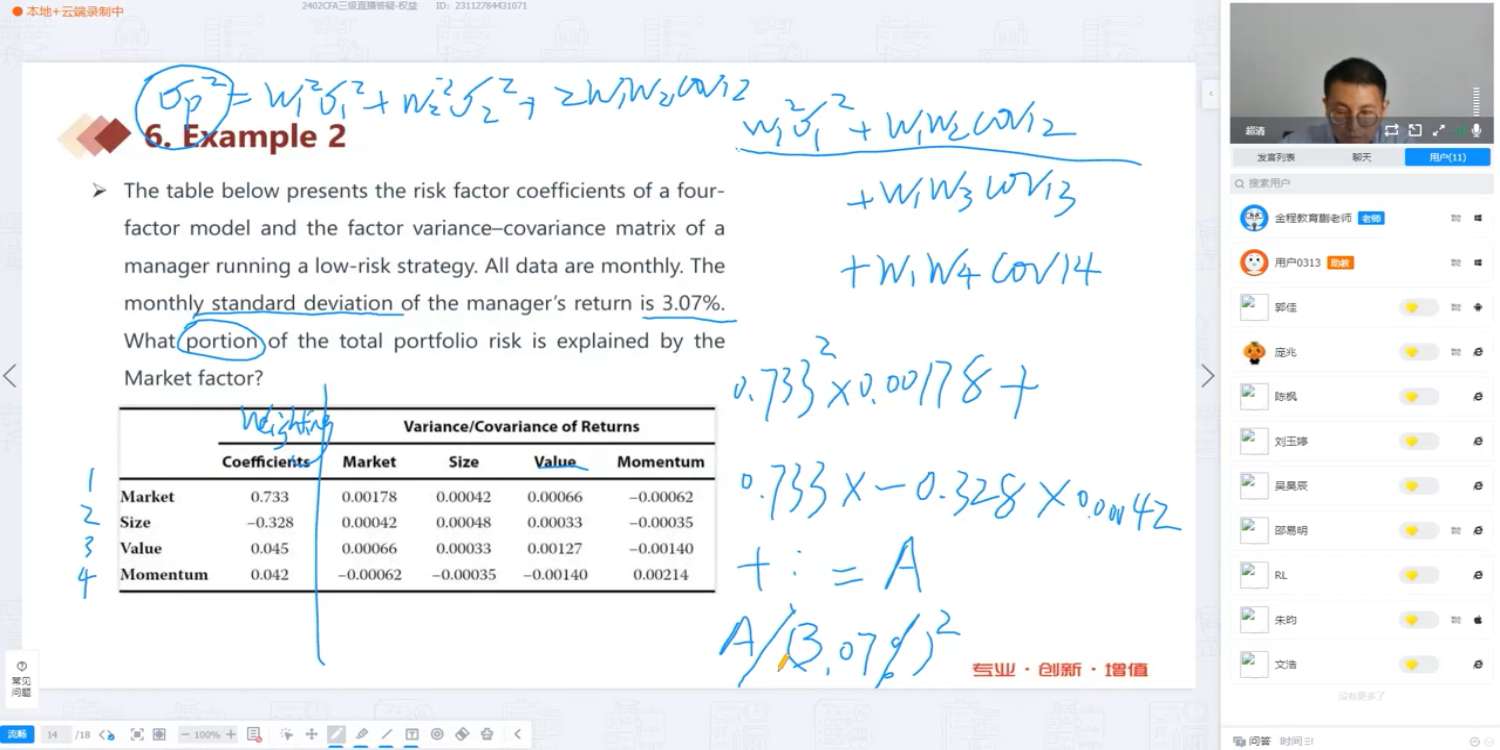 本地+云端录制中
2402CFA三级直播答疑-权益 ID：23112784431071
σp² = w₁²σ₁² + w₂²σ₂² + 2w₁w₂cov12
6. Example 2
➤ The table below presents the risk factor coefficients of a four-
factor model and the factor variance–covariance matrix of a
manager running a low-risk strategy. All data are monthly. The
monthly standard deviation of the manager's return is 3.07%.
What portion of the total portfolio risk is explained by the
Market factor?
Weighting
Variance/Covariance of Returns
Coefficients Market Size Value Momentum
1 Market 0.733 0.00178 0.00042 0.00066 −0.00062
2 Size −0.328 0.00042 0.00048 0.00033 −0.00035
3 Value 0.045 0.00066 0.00033 0.00127 −0.00140
4 Momentum 0.042 −0.00062 −0.00035 −0.00140 0.00214
w₁²σ₁² + w₁w₂cov12
+ w₁w₃cov13
+ w₁w₄cov14
0.733² × 0.00178 +
0.733 × −0.328 × 0.00042
+ : = A
A/(3.07%)²
专业·创新·增值
常见
问题
流畅 14 /18 100%
超清
发言列表 聊天 用户(11)
搜索用户
金程教育蒯老师 老师
用户0313 助教
郭佳
庞兆
陈枫
刘玉婷
吴昊辰
邵易明
RL
朱昀
文浩
没有更多了
问答 时间